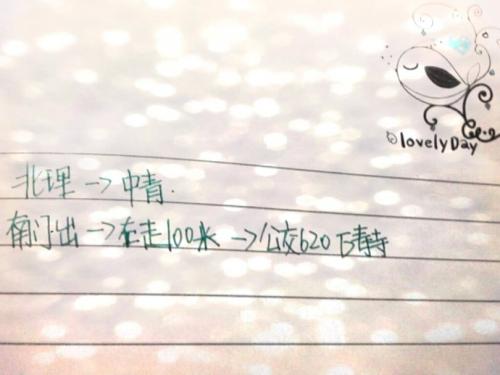 lovelyDay
北理→中青.
南门出→左走100米→公交620